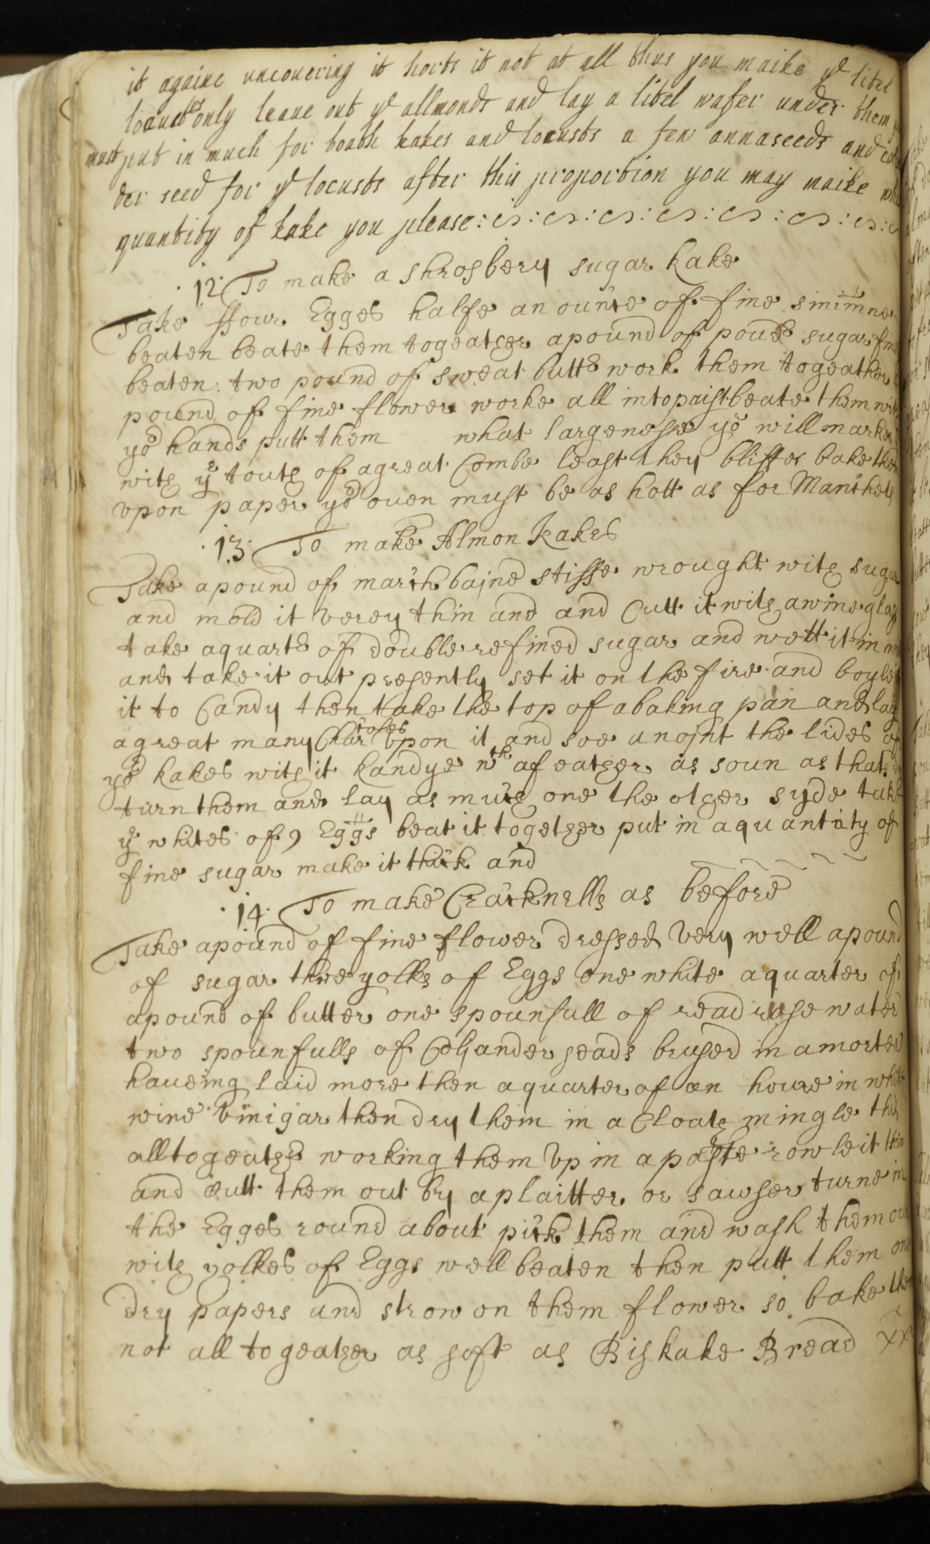 it againe uncouering it horts it not at all thus you maike ye litel
locusts only leaue out ye allmonds and lay a litel wafer under them
must put in much for boath kakes and locusts a few annaseeds and
der seed for ye locusts after this proportion you may maike
quantity of kake you please:
12: To make a shrosbery sugar kake
Take ffour Egges halfe an ounce of fine sinimne
beaten beate them togeather a pound of sugar
beaten: two pound of sweat butter work them togeather
pound of fine flower worke all into paist beate them with
yor hands putt them what largenese you will
with ye touth of a great Combe least they blister bake them
vpon paper ye ouen must be as hott as for Manchet
13: To make Almon Kakes
Take a pound of march bajne stiffe wrought with sugar
and mold it verey thin and and Cutt it with a wine glas
take a quarter of double refined sugar and wett it in
and take it out presently set it on the fire and boyle
it to Candy then take the top of a baking pan and lay
a great many Charcoles vpon it and soe anojnt the sides of
ye kakes with it kandye af eather as soun as that
turn them and lay as much one the other syde take
ye whites of 9 Eggs beat it togetger put in a quantity of
fine sugar make it thick and
14: To make Cracknells as before
Take a pound of fine flower dressed very well a pound
of sugar three yolks of Eggs one white a quarter of
a pound of butter one spounfull of read rose water
two spounfulls of Coljander seads brused in a morter
haueing laid more then a quarter of an houre in white
wine vinigar then dry them in a Cloath mingle this
alltogeather working them vp in a paste rowle it thin
and Cutt them out by a plaitter or sawser turne in
the Egges round about pick them and wash them ouer
with yolkes of Eggs well beaten then putt them on
dry papers and strow on them flower so bake them
not all togeather as soft as Biskake Bread xx